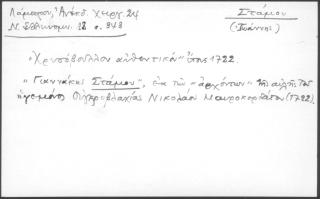 Λάμπρου, Ἀνέκδ. χειργ. 24
Ν. Ἑλληνομν. 18 σ. 343
Στάμου
(Ἰωάννης)
"Χρυσόβουλλον αὐθεντικόν" ἔτους 1722.
"Γιαννάκης Στάμου", ἐκ τῶν "ἀρχόντων" τῆς αὐλῆς τοῦ
ἡγεμόνος Οὐγκροβλαχίας Νικολάου Μαυροκορδάτου (1722).